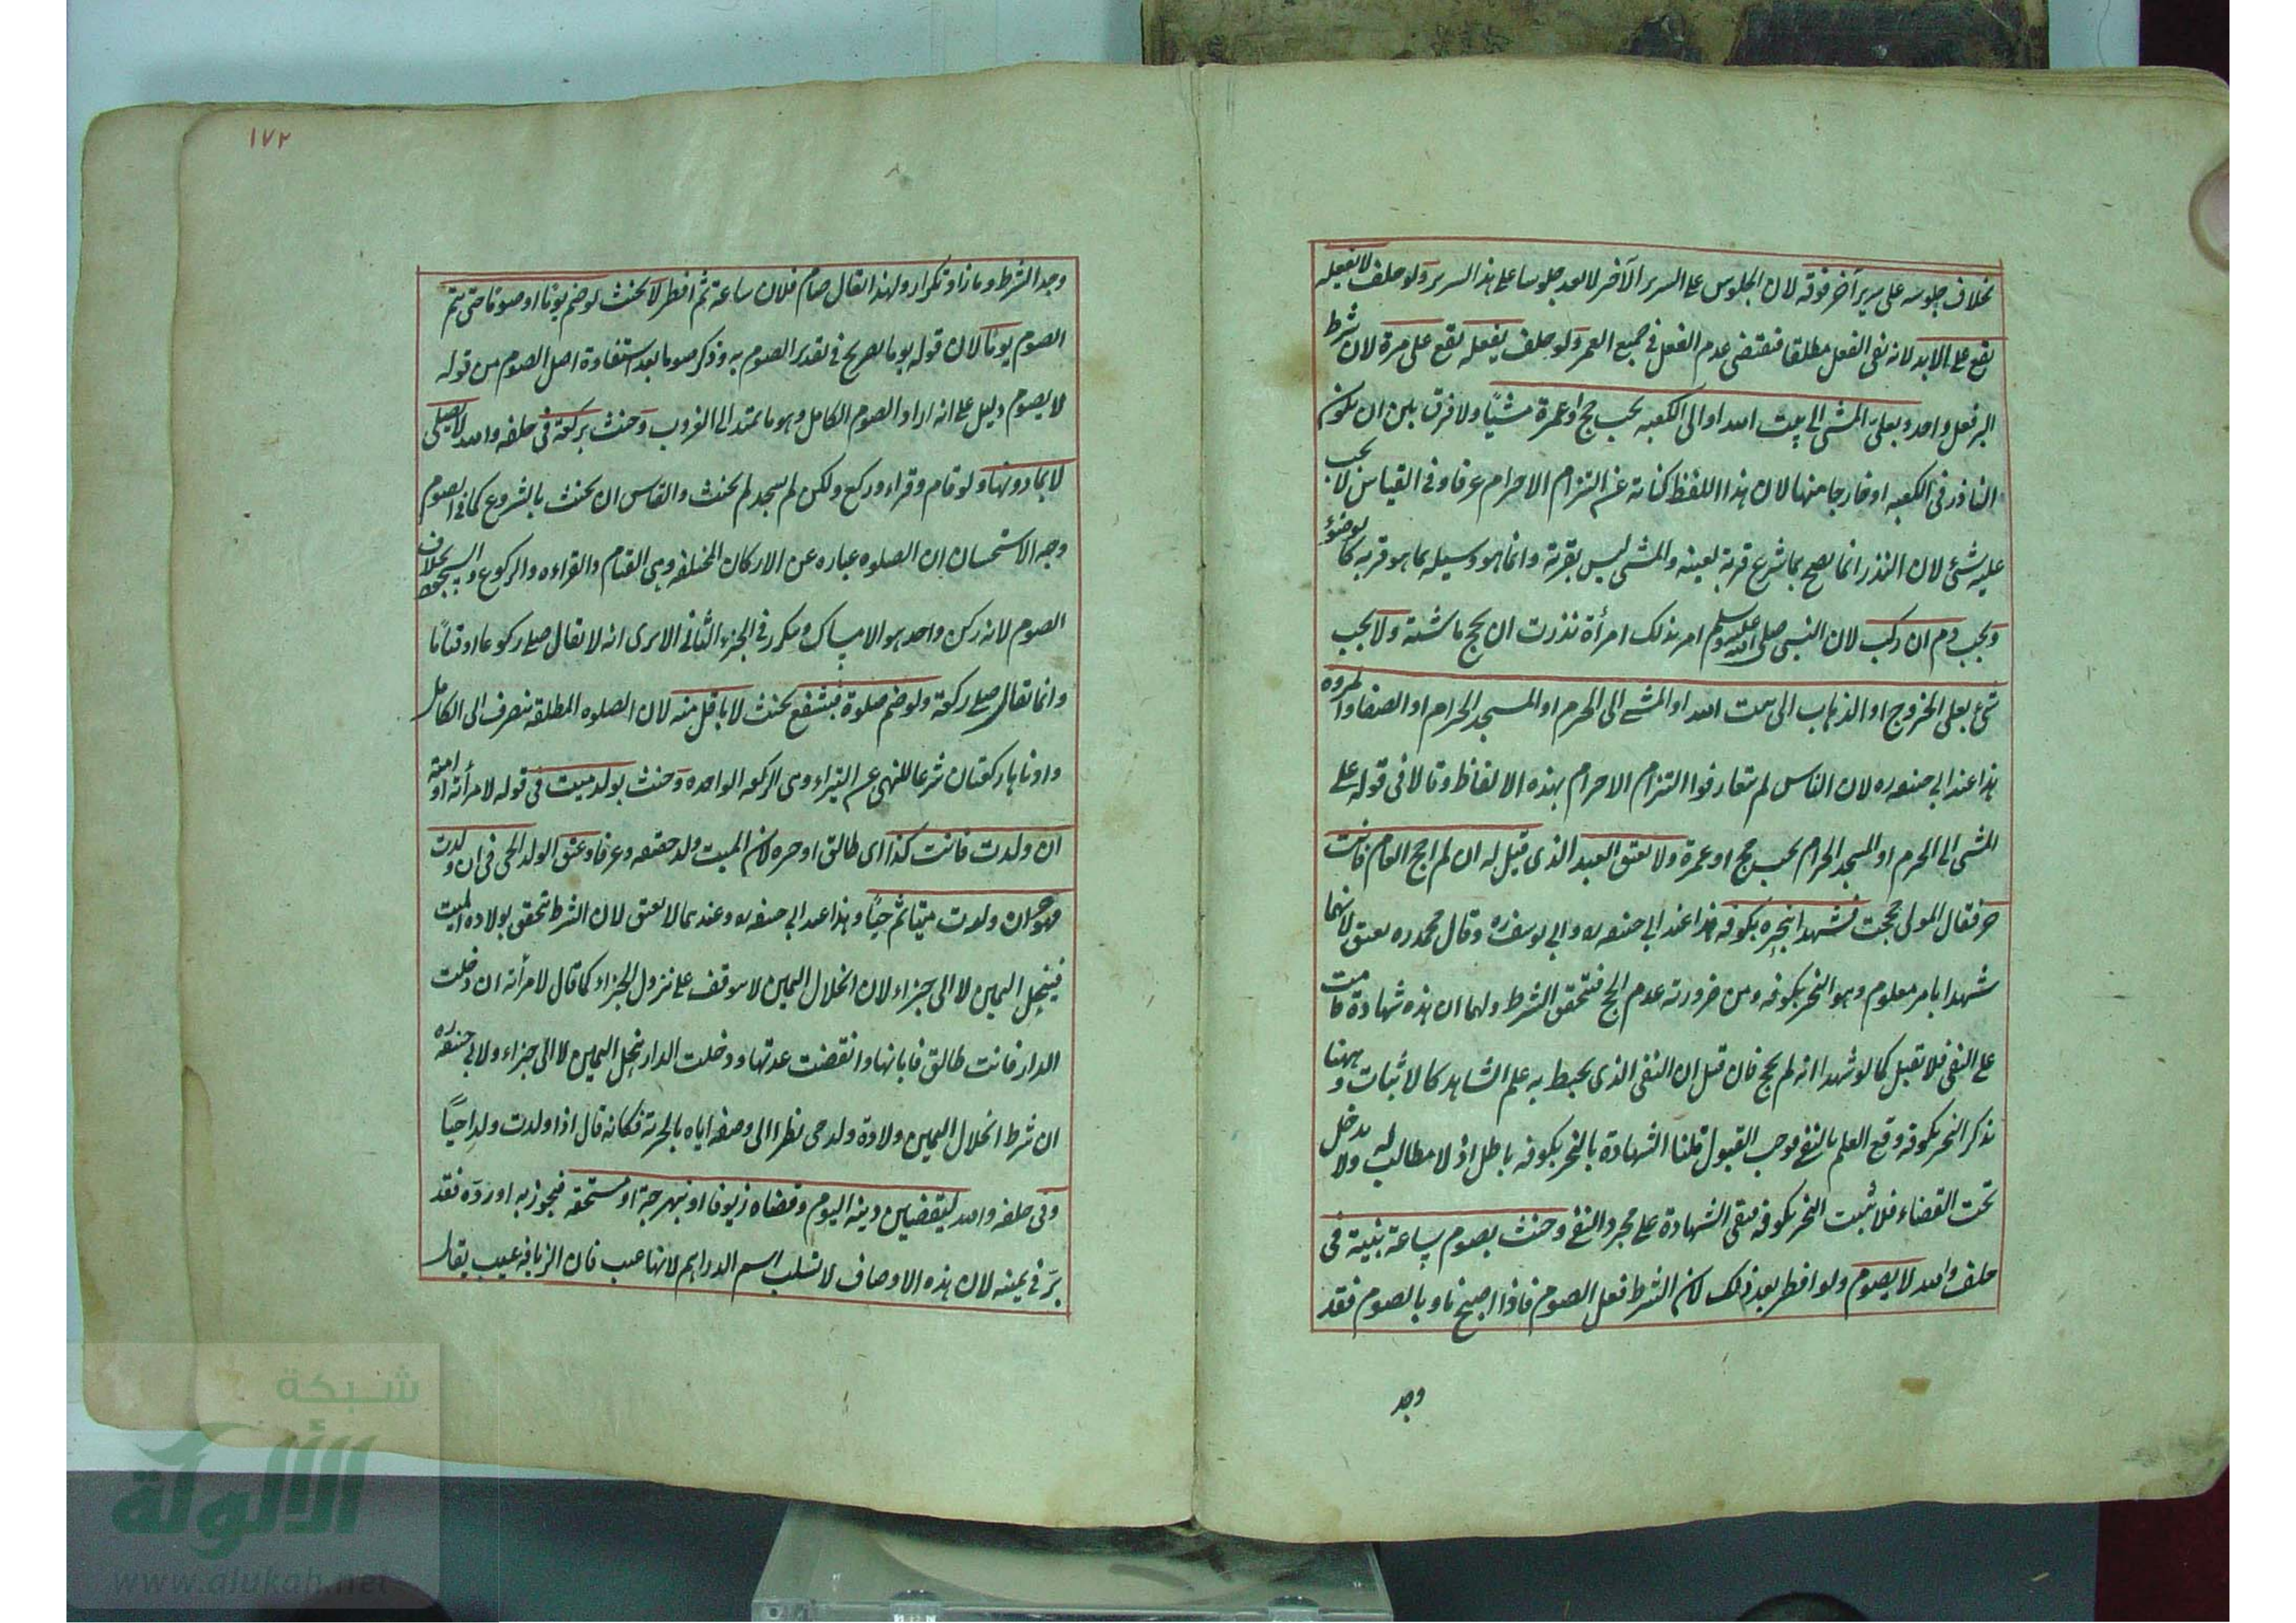 بخلاف جلوسه على سرير آخر فوقه لان الجلوس على السرير الآخر لا يعد جلوسا على هذا السرير ولو حلف لا يفعله
يقع على الابد لانه نفى الفعل مطلقا فيقتضى عدم الفعل فى جميع العمر ولو حلف يفعله يقع على مرة لان شرط
البر فعل واحد وبعلىّ المشى الى بيت الله او الى الكعبه يجب حج او عمرة مشيًا ولا فرق بين ان يكون
الناذر فى الكعبه او خارجا منها لان هذا اللفظ كناية عن التزام الاحرام عرفا وفى القياس لا يجب
عليه شئ لان النذر انما يصح بما شرع قربة لعينه والمشى ليس بقربة وانما هو وسيله بما هو قربه كالوضوء
ويجب دم ان ركب لان النبى صلى الله عليه وسلم امر بذلك امرأة نذرت ان يحج ماشية ولا يجب
شئ بعلى الخروج او الذهاب الى بيت الله او المشى الى الحرم او المسجد الحرام او الصفا والمروه
هذا عند ابى حنيفه ره لان الناس لم يتعارفوا التزام الاحرام بهذه الالفاظ وقالا فى قوله على
المشى الى الحرم او المسجد الحرام يجب حج او عمرة ولا يعتق العبد الذى قيل له ان لم احج العام فانت
حر فقال المولى حججت فشهدا بنحره بكوفه هذا عند ابى حنيفه ره وابى يوسف ره وقال محمد ره يعتق لانهما
شهدا بامر معلوم وهو النحر بكوفه ومن ضرورته عدم الحج فتحقق الشرط ولهما ان هذه شهادة قامت
على النفى فلا تقبل كما لو شهدا انه لم يحج فان قيل ان النفى الذى يحيط به علم الشاهد كالاثبات وههنا
بذكر النحر بكوفه وقع العلم بالنفى فوجب القبول قلنا الشهادة بالنحر بكوفه باطل اذ لا مطالب له ولا يدخل
تحت القضاء فلا يثبت النحر بكوفه فبقى الشهادة على مجرد النفى وحنث بصوم ساعة بنية فى
حلف والله لا يصوم ولو افطر بعد ذلك لان الشرط فعل الصوم فاذا اصبح ناويا لصوم فقد
وجد
١٧٢
وجد الشرط وما زاد تكرار ولهذا يقال صام فلان ساعة ثم افطر لا يحنث لو ضم يومًا او صومًا حتى يتم
الصوم يومًا لان قوله يوما صريح فى تقدير الصوم به وذكر صوما بعد استفادة اصل الصوم من قوله
لا يصوم دليل على انه اراد الصوم الكامل وهو ما يمتد الى الغروب وحنث بركعة فى حلفه والله لا يصلى
لا بما دونها ولو قام وقراء وركع ولكن لم يسجد لم يحنث والقياس ان يحنث بالشروع كما فى الصوم
وجه الاستحسان ان الصلوه عباره عن الاركان المختلفه وهى القيام والقراءه والركوع والسجود بخلاف
الصوم لانه ركن واحد هو الامساك ويتكرر فى الجزء الثانى الا يرى انه لا يقال صلى ركوعا او قيامًا
وانما يقال صلى ركعة ولو ضم صلوة فبشفع يحنث لا باقل منه لان الصلوه المطلقه ينصرف الى الكامل
وادناها ركعتان شرعا للنهى عن البتيراء وهى الركعه الواحده وحنث بولد ميت فى قوله لامرأته او امته
ان ولدت فانت كذا اى طالق او حره لان الميت ولد حقيقه وعرفا وعتق الولد الحى فى ان ولدت
فهو حر ان ولدت ميتا ثم حيًا وهذا عند ابى حنيفه ره وعندهما لا يعتق لان الشرط تحقق بولاده الميت
فينحل اليمين لا الى جزاء لان انحلال اليمين لا يتوقف على نزول الجزاء كما قال لامرأته ان دخلت
الدار فانت طالق فابانها وانقضت عدتها ودخلت الدار ينحل اليمين لا الى جزاء ولابى حنيفه ره
ان شرط انحلال اليمين ولادة ولد حى نظرا الى وصفه اياه بالحرية فكانه قال اذا ولدت ولدا حيًا
وفى حلفه والله ليقضين دينه اليوم وقضاه زيوفا او نبهرجة او مستحقه فيجوز به او ردّه فقد
برّ فى يمينه لان هذه الاوصاف لا تسلب اسم الدراهم لانها عيب فان الزيافه عيب يقال
شبكة
الألوكة
www.alukah.net